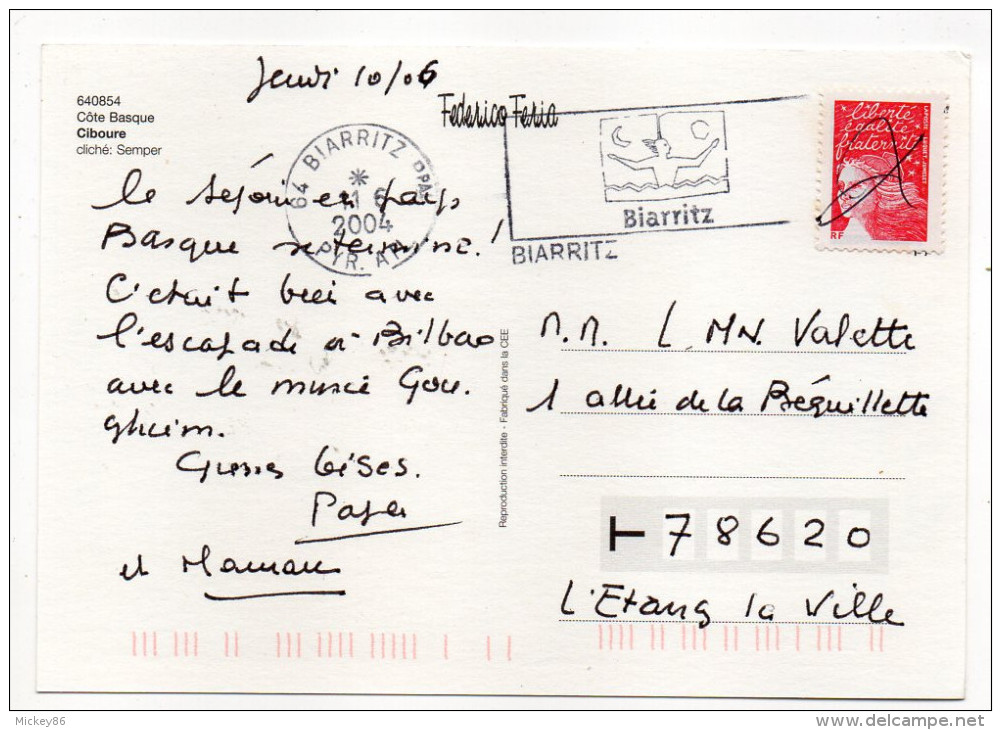 Jeudi 10/06
640854
Côte Basque
Ciboure
cliché: Semper
Federico Feria
64 BIARRITZ PPAL
11 6
2004
PYR. ATL
Biarritz
BIARRITZ
liberté
égalité
fraternité
RF
LA POSTE
le séjour en pays
Basque se termine !
C'était bien avec
l'escapade à Bilbao
avec le musée Gou.
gheim.
Grosses bises.
Papa
et Maman
Reproduction interdite - Fabriqué dans la CEE
M.M. L. MN. Valette
1 allée de la Béquillette
78620
L'Etang la Ville
Mickey86
delcampe.net